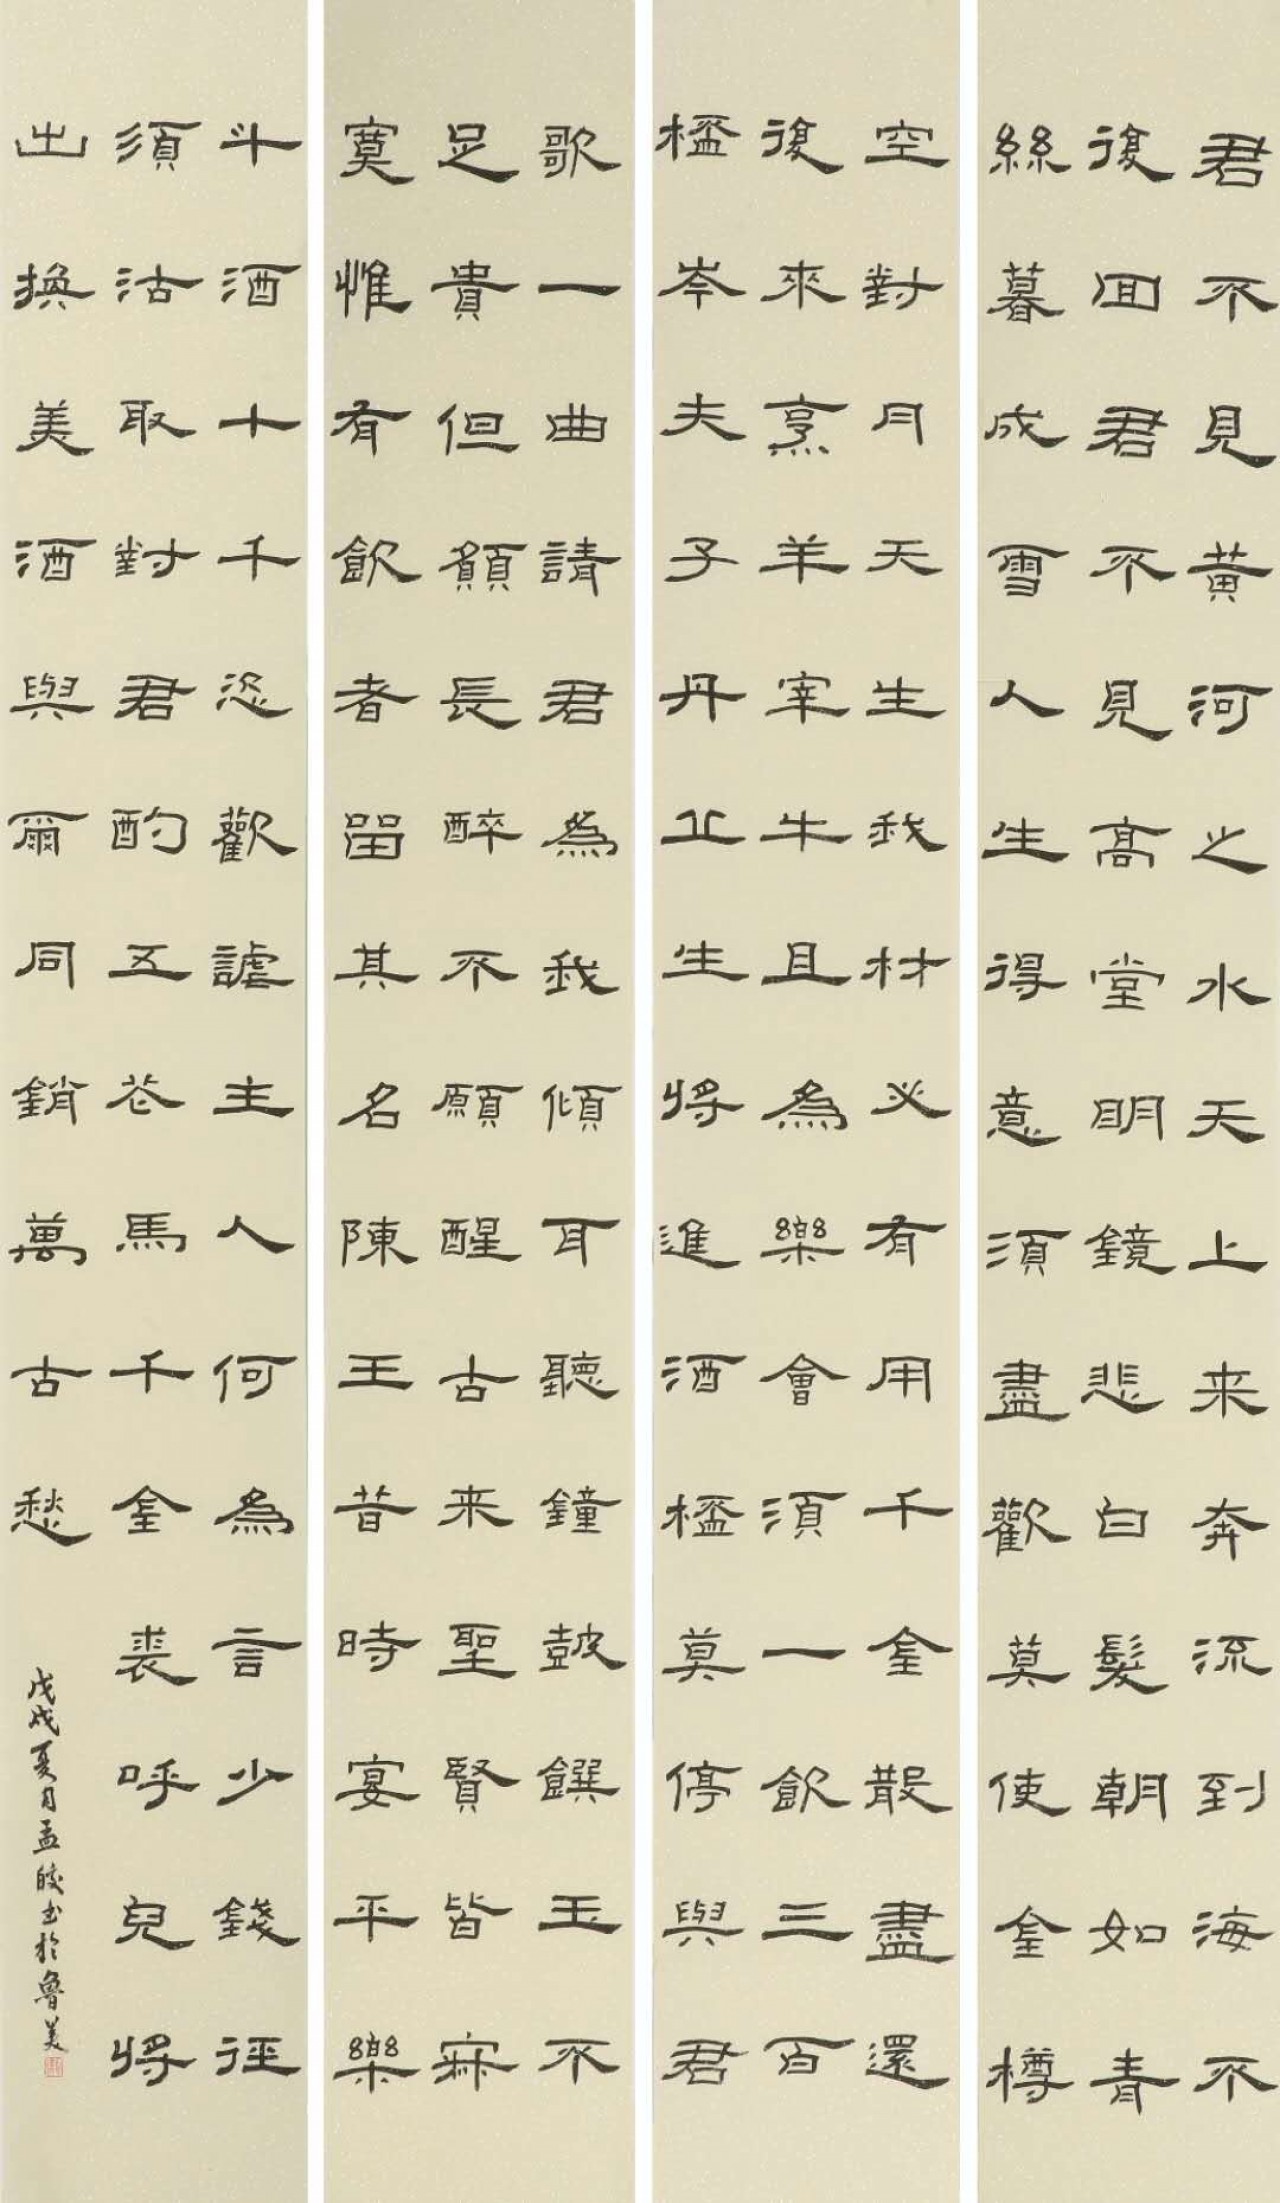 君不見黃河之水天上来奔流到海不
復回君不見高堂明鏡悲白髮朝如青
絲暮成雪人生得意須盡歡莫使金樽
空對月天生我材必有用千金散盡還
復來烹羊宰牛且為樂會須一飲三百
桮岑夫子丹丘生將進酒桮莫停與君
歌一曲請君為我傾耳聽鐘鼓饌玉不
足貴但願長醉不願醒古来聖賢皆寂
寞惟有飲者留其名陳王昔時宴平樂
斗酒十千恣歡謔主人何為言少錢徑
須沽取對君酌五花馬千金裘呼兒將
出換美酒與爾同銷萬古愁
戊戌夏月孟皎书於魯美